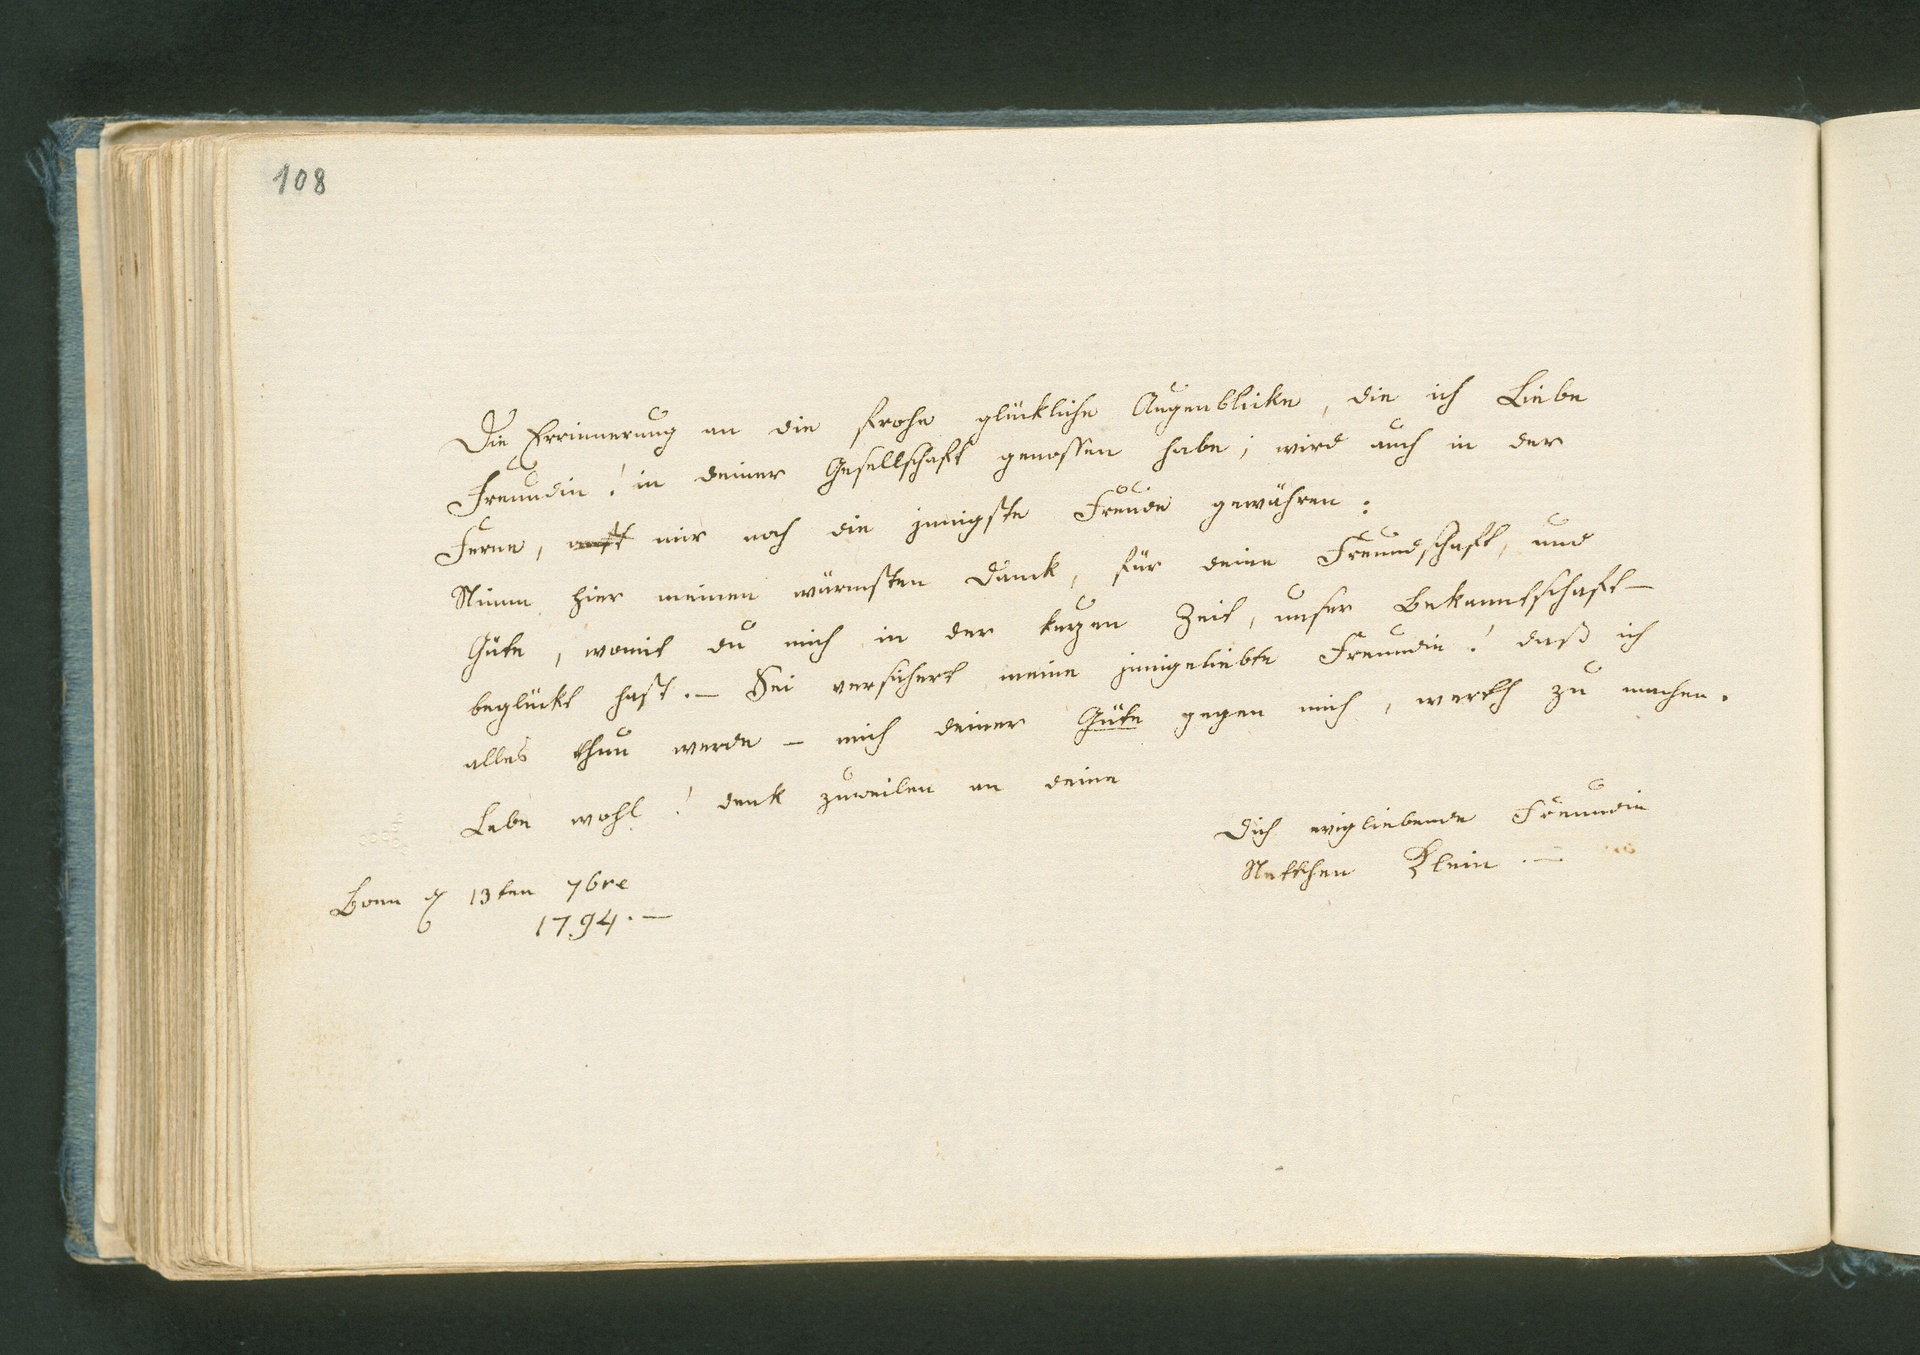 108
Die Errinnerung an die frohe glückliche Augenblicke, die ich Liebe
Freundin! in deiner Gesellschaft genossen habe; wird auch in der
Ferne, mir noch die jnnigste Freude gewähren:
Nimm hier meinen wärmsten Danck, für deine Freundschaft, und
Güte, womit du mich in der kurzen Zeit, unser Bekanntschaft –
beglückt hast. – Sei versichert meine jnnigeliebte Freundin! daß ich
alles thun werde – mich deiner Güte gegen mich, werth zu machen.
Lebe wohl! denk zuweilen an deine
Dich ewigliebende Freundin
Nettchen Klein. –
Bonn d 13ten 7bre
1794. –